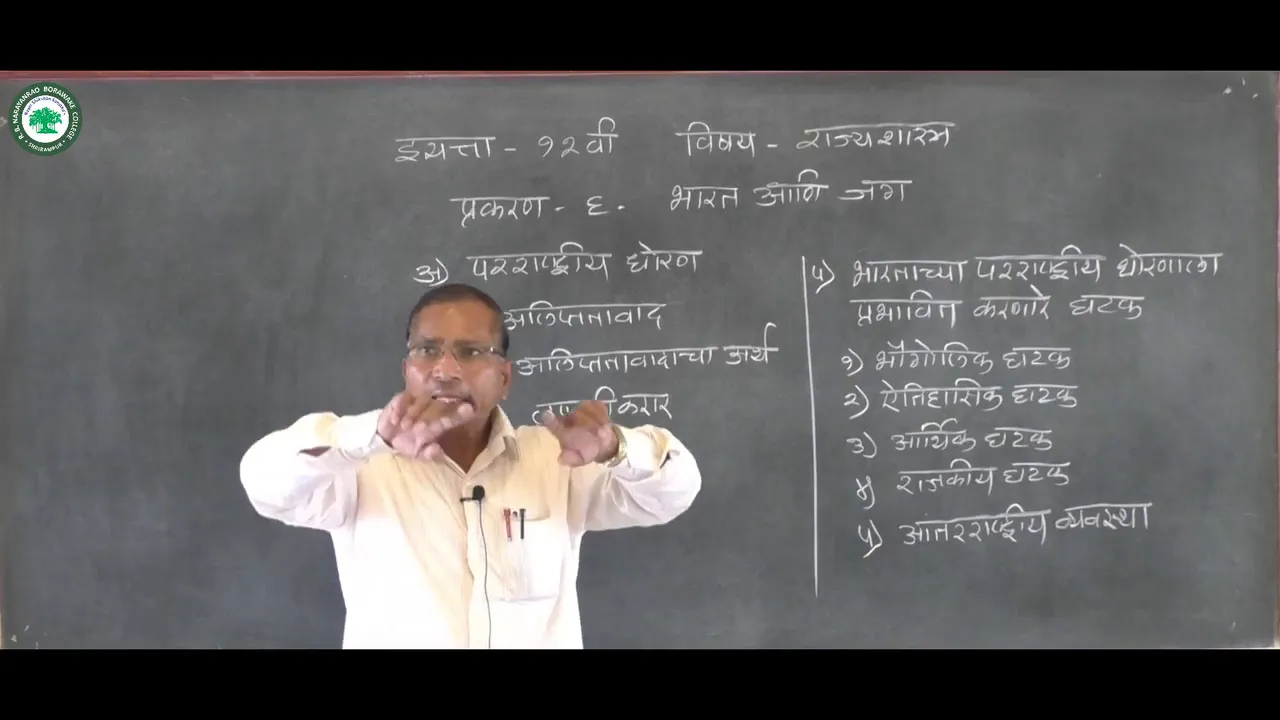 R.B. NARAYANRAO BORAWAKE COLLEGE
SHRIRAMPUR
इयत्ता - १२ वी विषय - राज्यशास्त्र
प्रकरण - ६. भारत आणि जग
अ) परराष्ट्रीय धोरण
अलिप्ततावाद
अलिप्ततावादाचा अर्थ
करार
५) भारताच्या परराष्ट्रीय धोरणाला
प्रभावित करणारे घटक
१) भौगोलिक घटक
२) ऐतिहासिक घटक
३) आर्थिक घटक
४) राजकीय घटक
५) आंतरराष्ट्रीय व्यवस्था